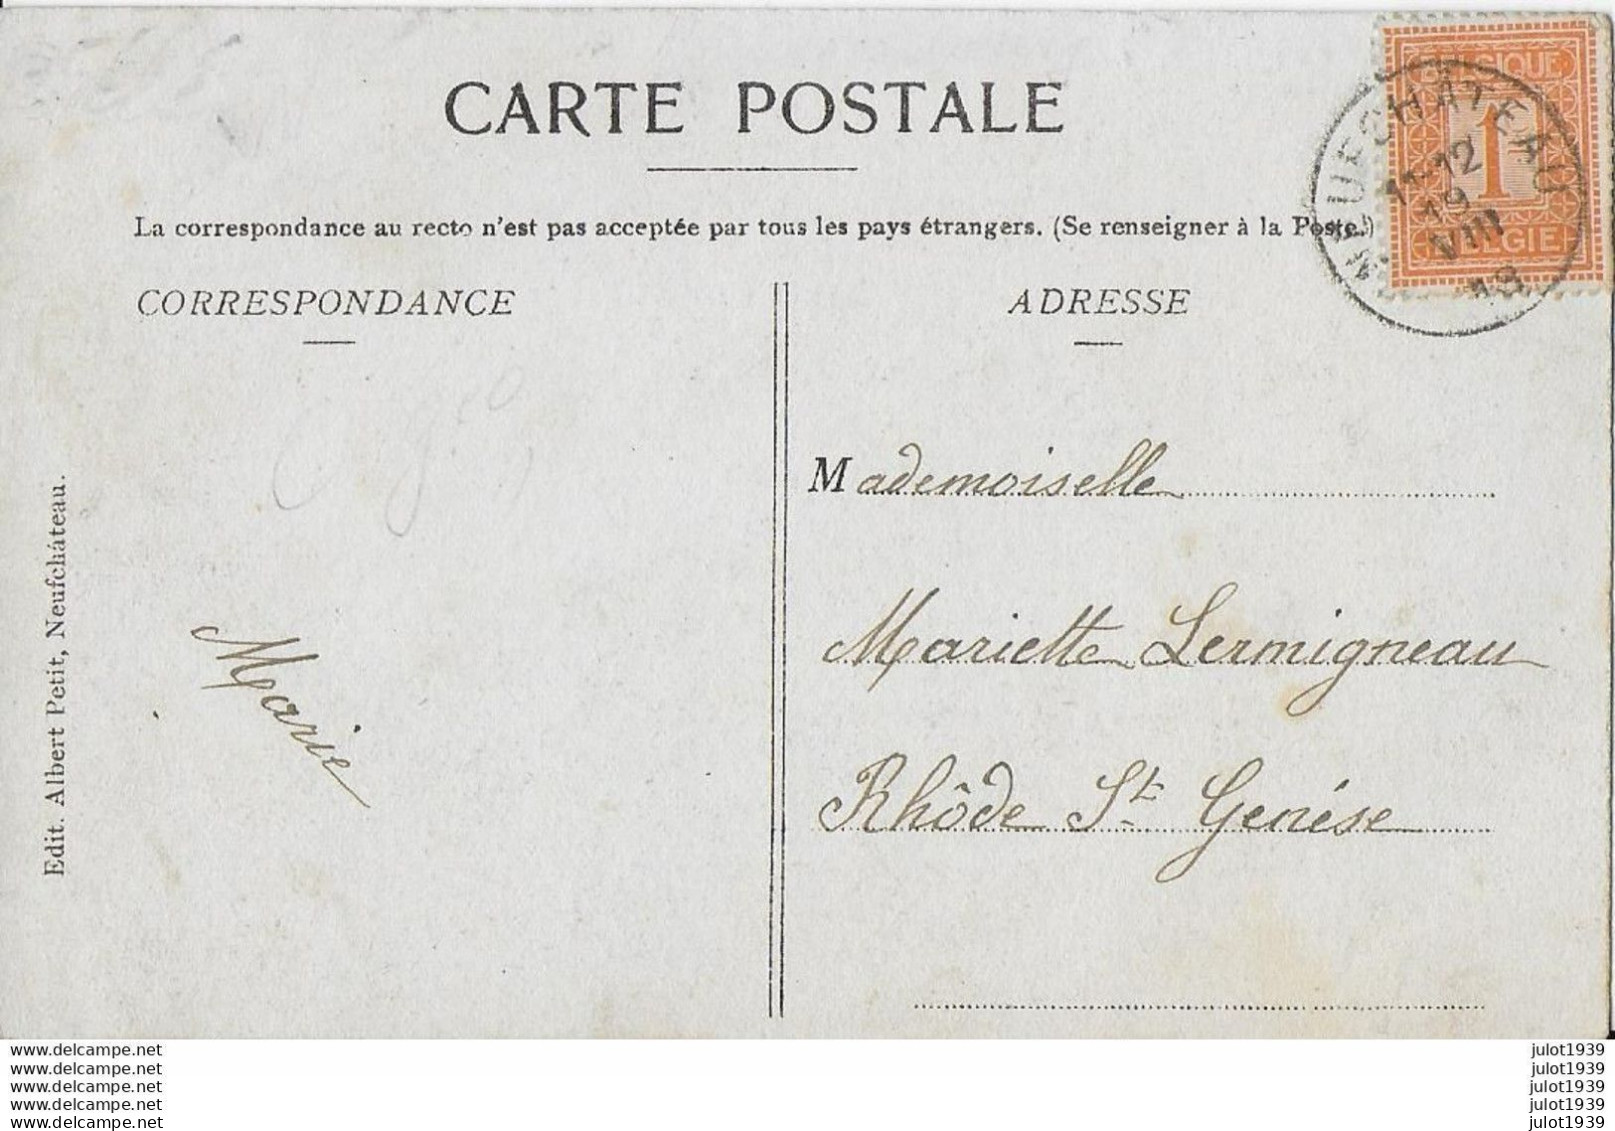 CARTE POSTALE
La correspondance au recto n'est pas acceptée par tous les pays étrangers. (Se renseigner à la Poste.)
BELGIQUE
1
BELGIE
NEUFCHÂTEAU
11-12
19
VIII
CORRESPONDANCE
ADRESSE
Mademoiselle
Mariette Lermigneau
Rhôde St Genése
Marie
Edit. Albert Petit, Neufchâteau.
www.delcampe.net
www.delcampe.net
www.delcampe.net
www.delcampe.net
www.delcampe.net
julot1939
julot1939
julot1939
julot1939
julot1939